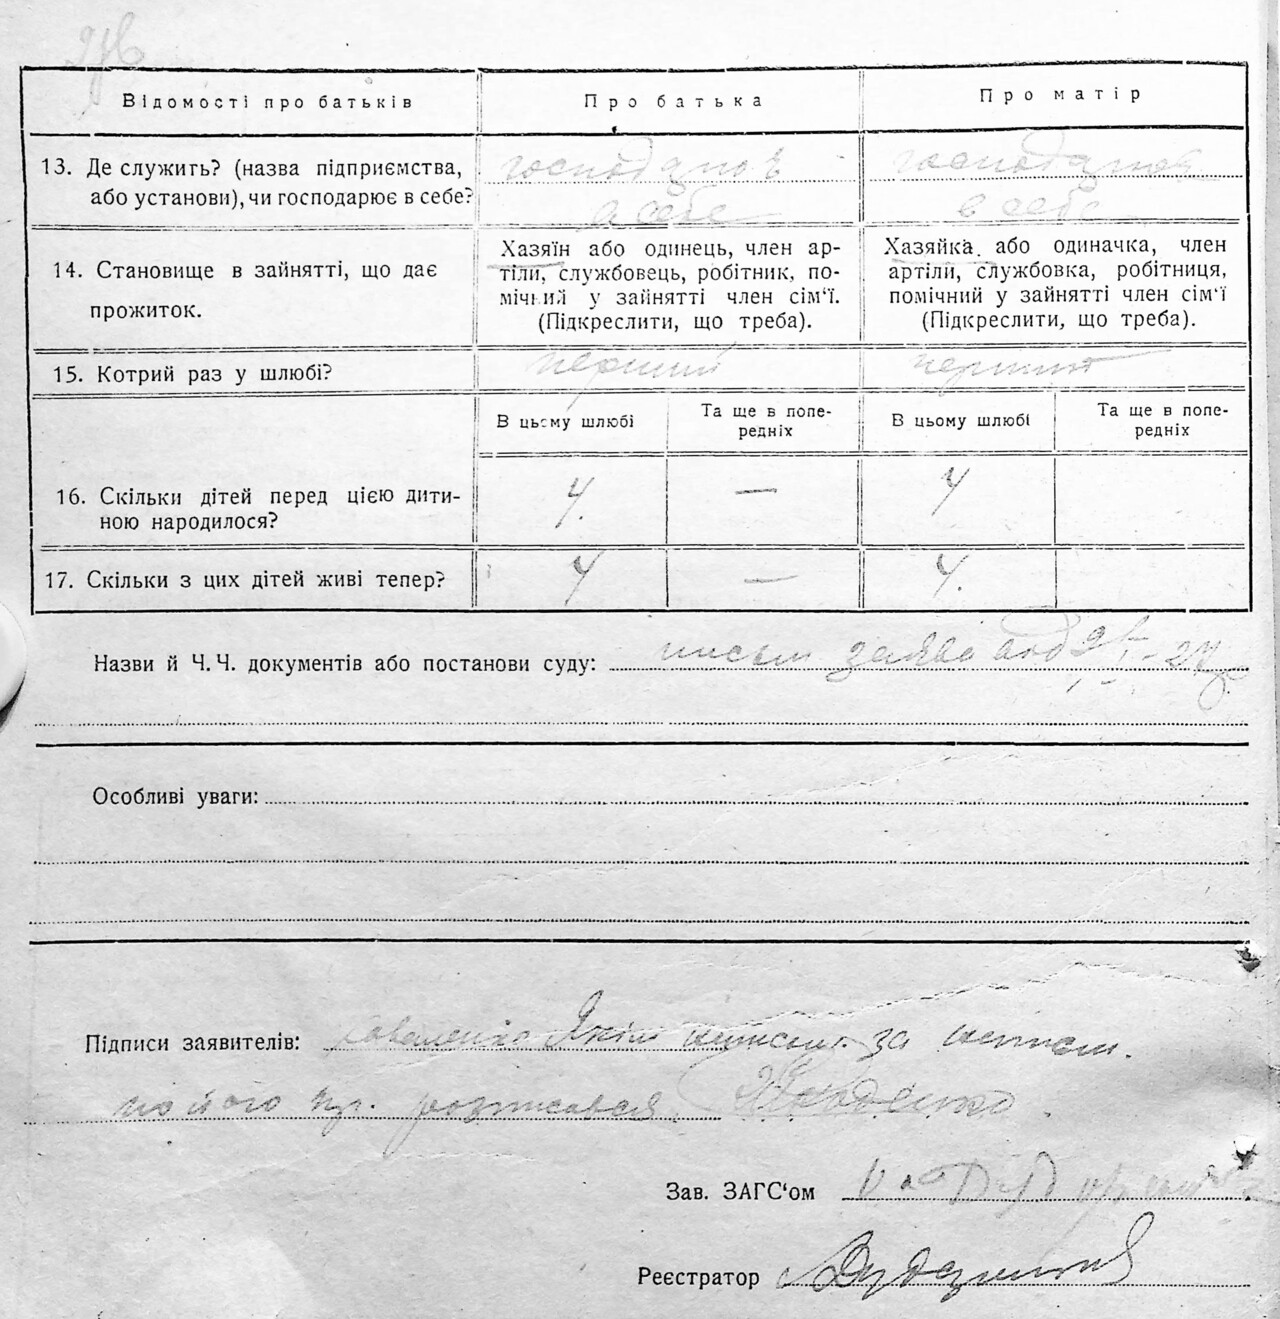 Відомості про батьків
Про батька
Про матір
13. Де служить? (назва підприємства,
або установи), чи господарює в себе?
господарює
в себе
господарює
в себе
14. Становище в зайнятті, що дає
прожиток.
Хазяїн або одинець, член ар-
тіли, службовець, робітник, по-
мічний у зайнятті член сім‘ї.
(Підкреслити, що треба).
Хазяйка або одиначка, член
артіли, службовка, робітниця,
помічний у зайнятті член сім‘ї
(Підкреслити, що треба).
15. Котрий раз у шлюбі?
перший
перший
В цьому шлюбі
Та ще в попе-
редніх
В цьому шлюбі
Та ще в попе-
редніх
16. Скільки дітей перед цією дити-
ною народилося?
4
—
4
17. Скільки з цих дітей живі тепер?
4
—
4.
Назви й Ч. Ч. документів або постанови суду: письм заява
Особливі уваги:
Підписи заявителів: Яким за
його розписався
Зав. ЗАГС‘ом
Реєстратор